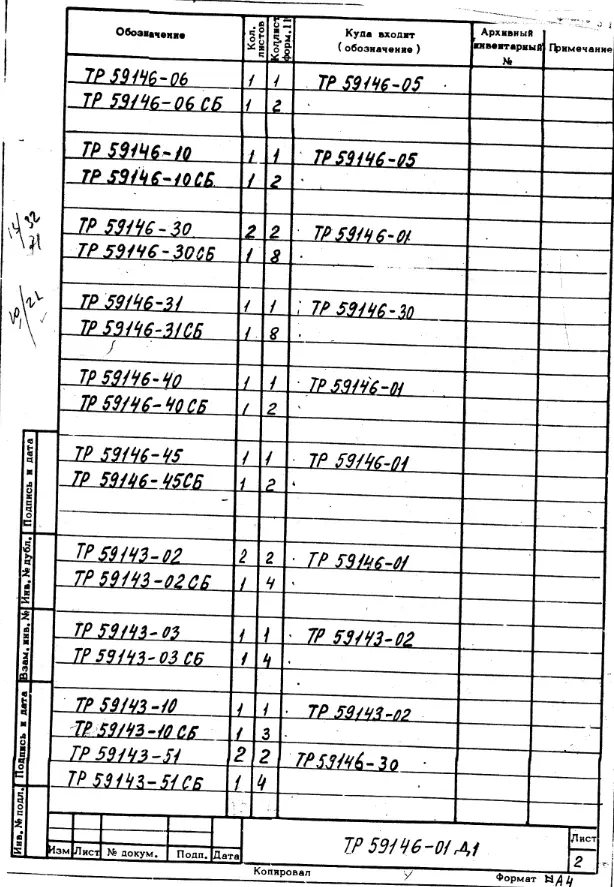 Обозначение Кол. листов Кол.лист форм.11 Куда входит (обозначение) Архивный инвентарный № Примечание
ТР 59146-06 1 1 ТР 59146-05
ТР 59146-06 СБ 1 2
ТР 59146-10 1 1 ТР 59146-05
ТР 59146-10СБ 1 2
ТР 59146-30 2 2 ТР 59146-01
ТР 59146-30СБ 1 8
ТР 59146-31 1 1 ТР 59146-30
ТР 59146-31СБ 1 8
ТР 59146-40 1 1 ТР 59146-01
ТР 59146-40СБ 1 2
ТР 59146-45 1 1 ТР 59146-01
ТР 59146-45СБ 1 2
ТР 59143-02 2 2 ТР 59146-01
ТР 59143-02СБ 1 4
ТР 59143-03 1 1 ТР 59143-02
ТР 59143-03 СБ 1 4
ТР 59143-10 1 1 ТР 59143-02
ТР 59143-10 СБ 1 3
ТР 59143-51 2 2 ТР 59146-30
ТР 59143-51СБ 1 4
Инв.№ подл. Подпись и дата Взам. инв. № Инв.№ дубл. Подпись и дата
Изм Лист № докум. Подп. Дата
ТР 59146-01 Д1
Лист
2
Копировал
Формат А4